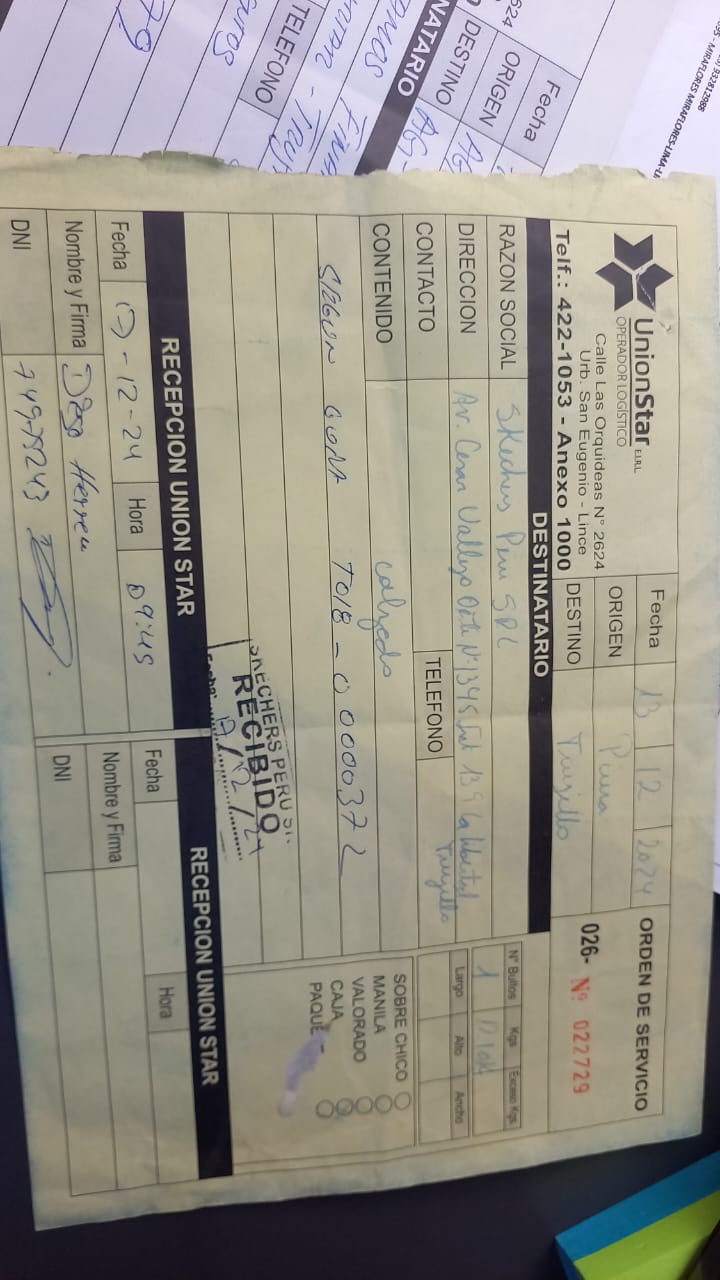 UnionStar E.I.R.L
OPERADOR LOGÍSTICO
Calle Las Orquideas N° 2624
Urb. San Eugenio - Lince
Telf.: 422-1053 - Anexo 1000
Fecha 13 12 2024
ORIGEN Piura
DESTINO Trujillo
ORDEN DE SERVICIO
026- Nº 022729
DESTINATARIO
RAZON SOCIAL Skechers Peru SRL
DIRECCION Av. Cesar Vallejo Oeste N° 1345 Int 139 La Libertad
Trujillo
CONTACTO TELEFONO
CONTENIDO calzado
Según Guia T018-00000372
N° Bultos Kgs Exceso Kgs
1
Largo Alto Ancho
SOBRE CHICO
MANILA
VALORADO
CAJA
PAQUE
SKECHERS PERU S
RECIBIDO
Fecha: 17/12/24
RECEPCION UNION STAR
Fecha 17-12-24 Hora 09:45
Nombre y Firma Diego Herrera
DNI 74975243
RECEPCION UNION STAR
Fecha Hora
Nombre y Firma
DNI
Fecha
ORIGEN
DESTINO
NATARIO
TELEFONO
MIRAFLORES MIRAFLORES-LIMA